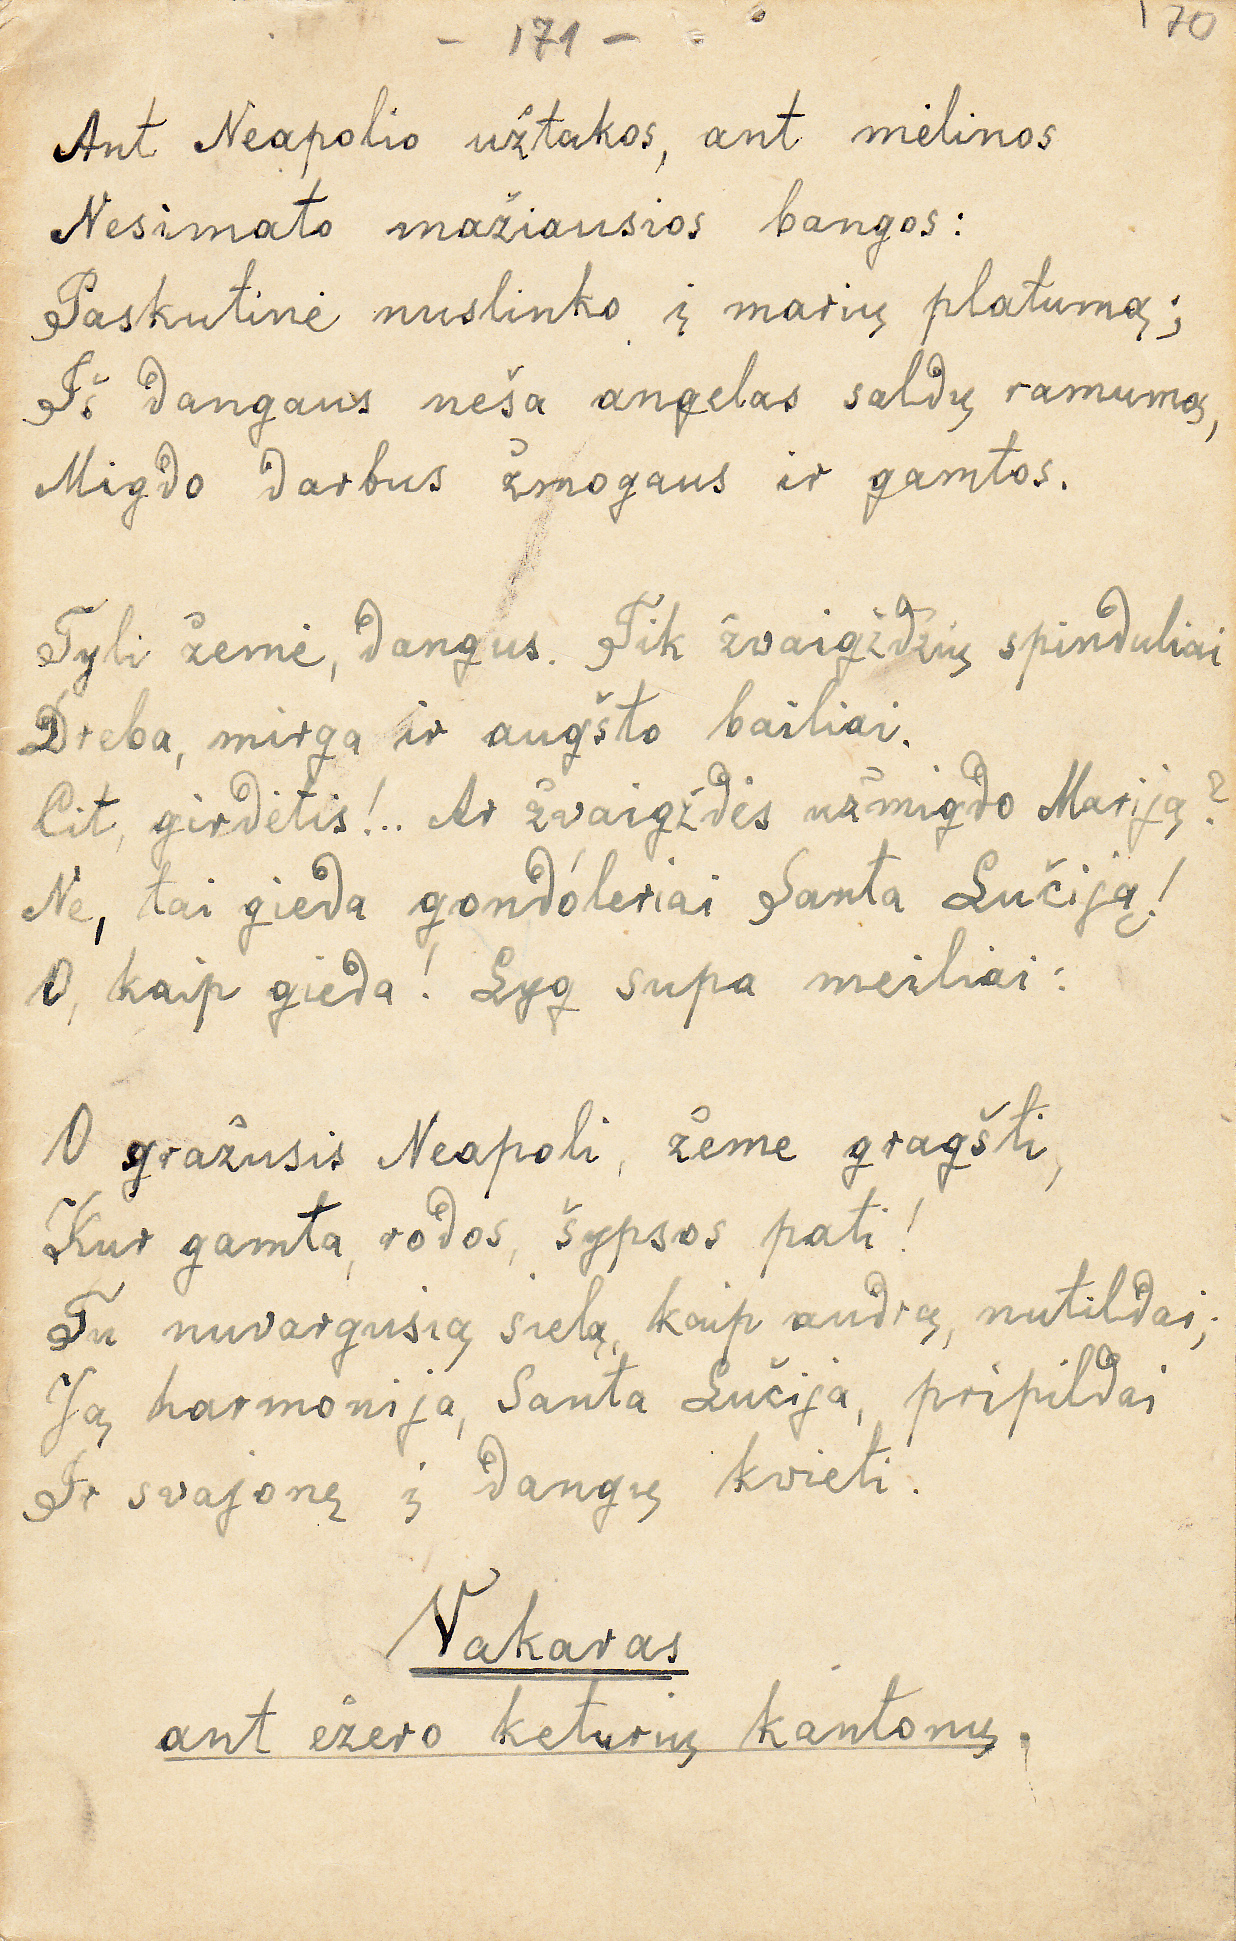 - 171 -
170
Ant Neapolio užtakos, ant mėlinos
Nesimato mažiausios bangos:
Paskutinė nuslinko į marių platumą;
Iš dangaus neša angelas saldų ramumą,
Migdo darbus žmogaus ir gamtos.
Tyli žemė, dangus. Tik žvaigždžių spinduliai
Dreba, mirga ir augšto bailiai.
Cit, girdėtis!.. Ar žvaigždės užmigdo Mariją?
Ne, tai gieda gondóleriai Santa Lučiją!
O, kaip gieda! Lyg supa meiliai:
O gražusis Neapoli, žeme gragšti,
Kur gamta, rodos, šypsos pati!
Tu nuvargusią sielą, kaip audrą, nutildai;
Ją harmonija, Santa Lučija, pripildai
Ir svajonę į dangų kvieti.
Vakaras
ant ežero keturių kantonų.